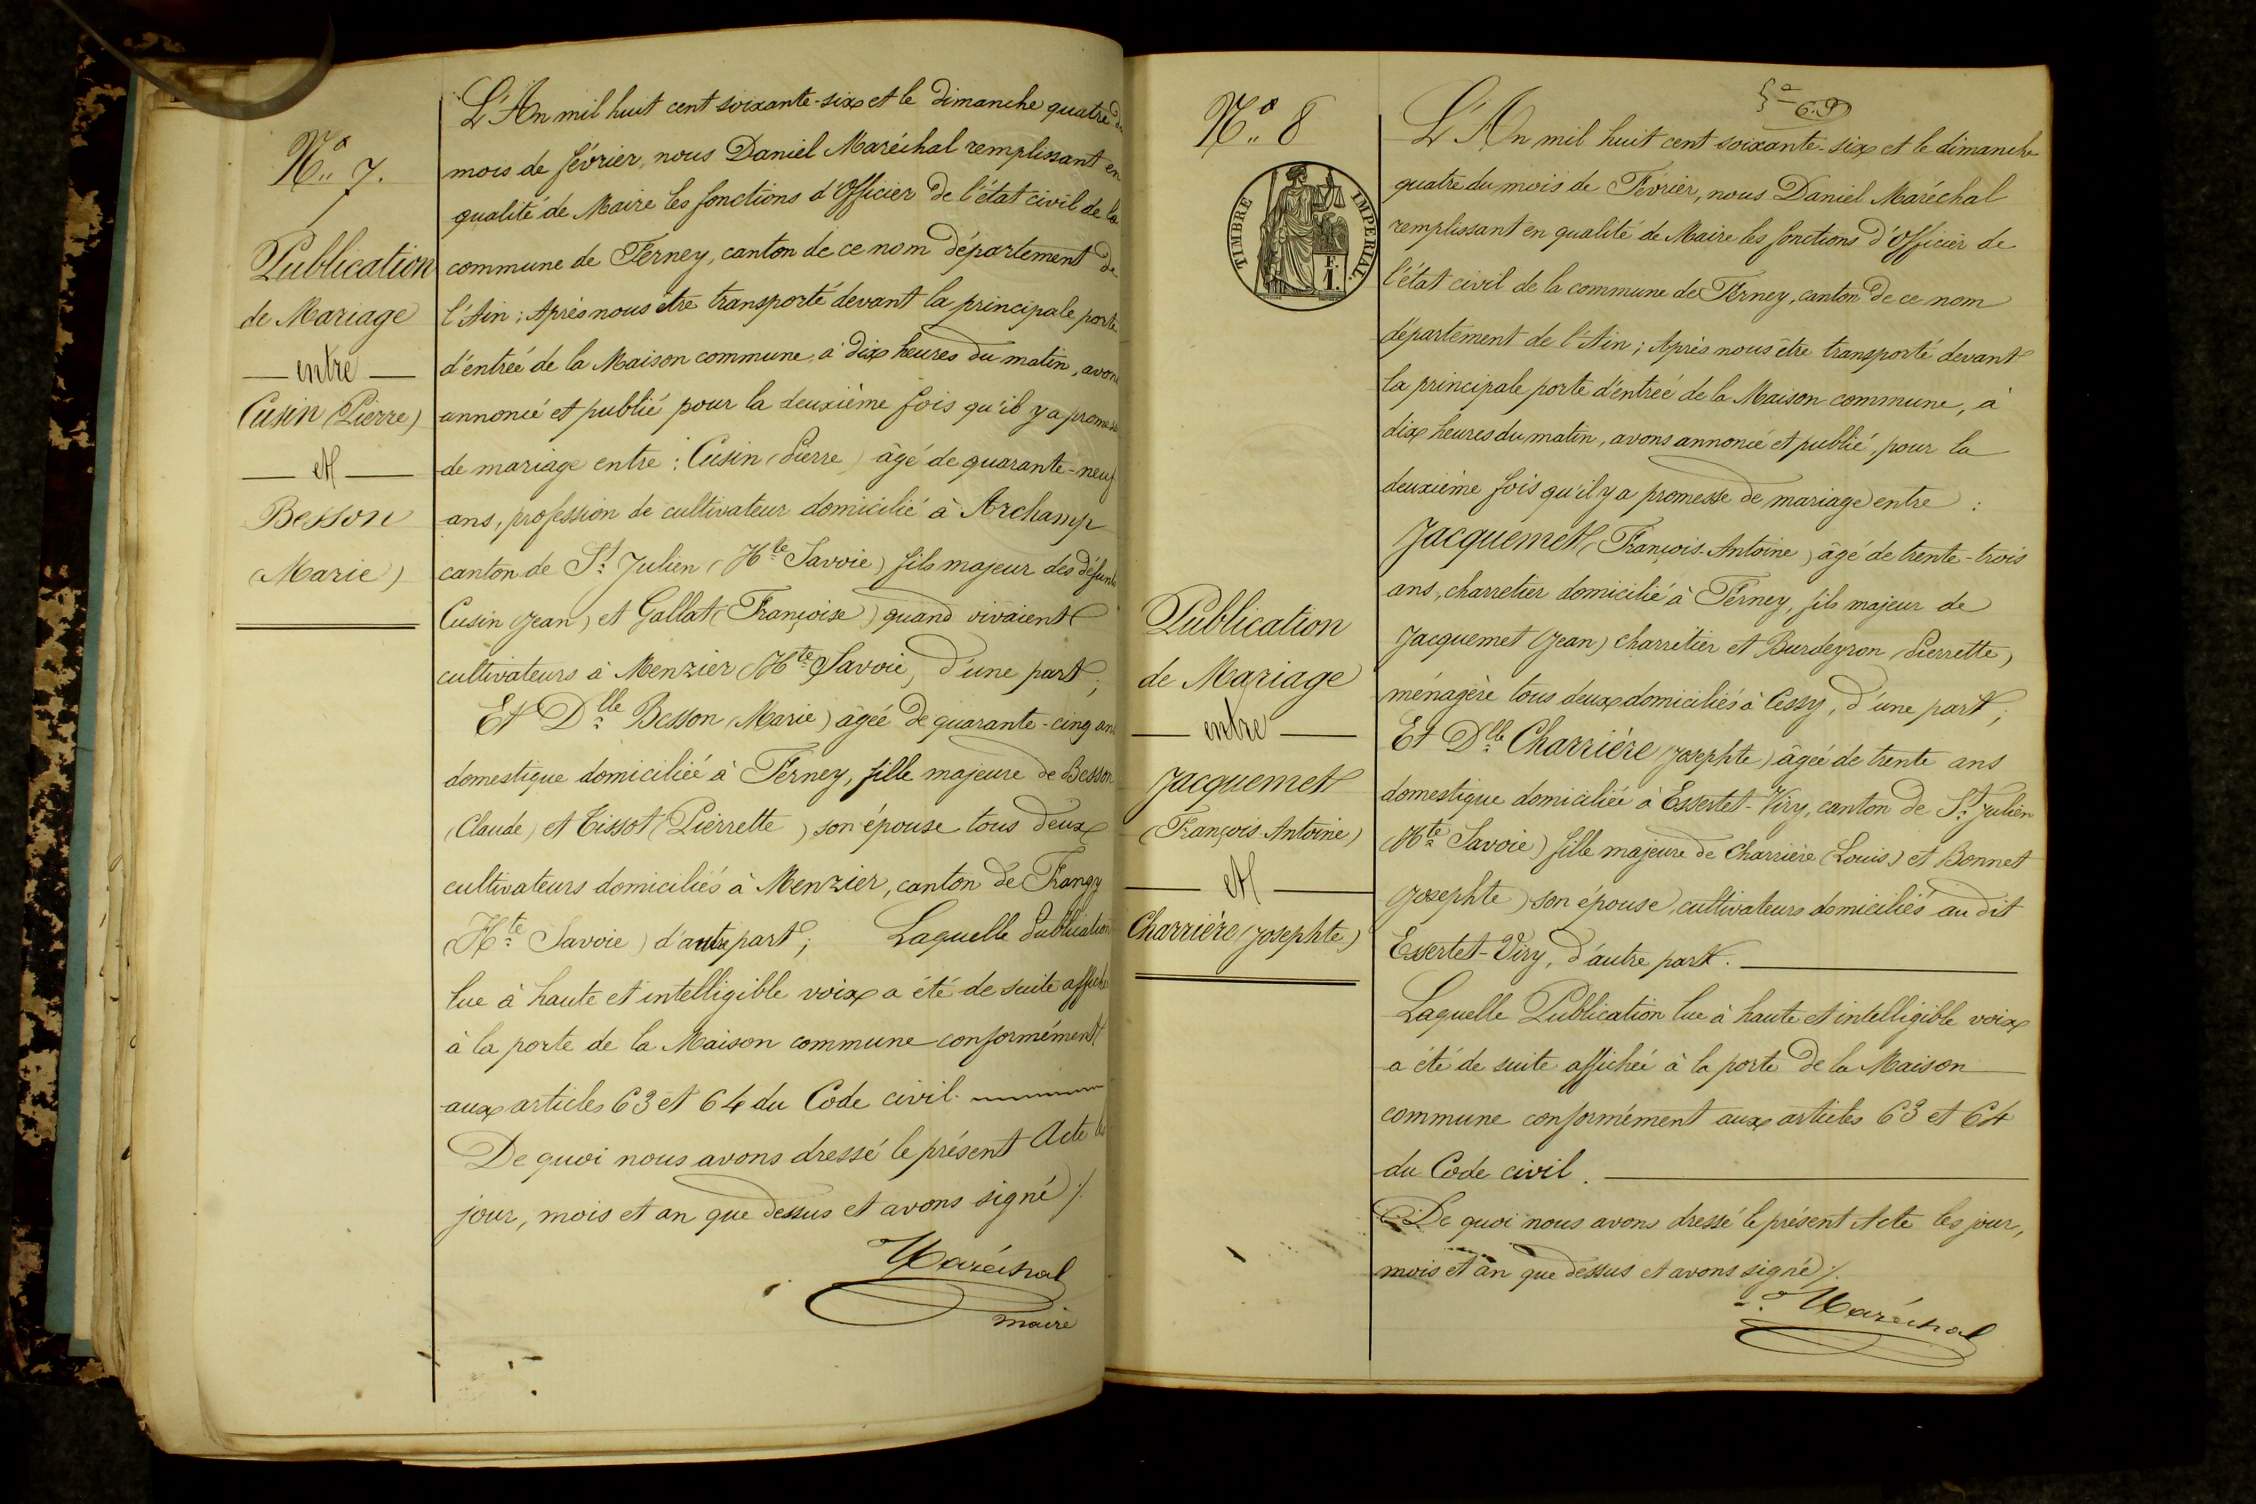 Nº 7.
Publication
de Mariage
— entre —
Cusin (Pierre)
— et —
Besson
(Marie)
L'An mil huit cent soixante-six et le dimanche quatre du
mois de février, nous Daniel Maréchal remplissant en
qualité de Maire les fonctions d'Officier de l'état civil de la
commune de Ferney, canton de ce nom département de
l'Ain ; Après nous être transporté devant la principale porte
d'entrée de la Maison commune, à dix heures du matin, avons
annoncé et publié pour la deuxième fois qu'il y a promesse
de mariage entre : Cusin (Pierre) âgé de quarante-neuf
ans, profession de cultivateur domicilié à Archamp
canton de St. Julien (Hte Savoie) fils majeur des défunts
Cusin (Jean) et Gallat (Françoise) quand vivaient
cultivateurs à Menzier (Hte Savoie, d'une part ;
Et Dlle Besson (Marie) âgée de quarante-cinq ans
domestique domiciliée à Ferney, fille majeure de Besson
(Claude) et Tissot (Pierrette) son épouse tous deux
cultivateurs domiciliés à Menzier, canton de Frangy
(Hte Savoie) d'autre part ; Laquelle Publication
lue à haute et intelligible voix a été de suite affichée
à la porte de la Maison commune conformément
aux articles 63 et 64 du Code civil.
De quoi nous avons dressé le présent Acte les
jour, mois et an que dessus et avons signé ./.
Maréchal
maire
Nº 8
TIMBRE IMPERIAL.
F.
1.
Publication
de Mariage
— entre —
Jacquemet
(François-Antoine)
— et —
Charrière (Josephte)
69
L'An mil huit cent soixante-six et le dimanche
quatre du mois de Février, nous Daniel Maréchal
remplissant en qualité de Maire les fonctions d'Officier de
l'état civil de la commune de Ferney, canton de ce nom
département de l'Ain ; Après nous être transporté devant
la principale porte d'entrée de la Maison commune, à
dix heures du matin, avons annoncé et publié, pour la
deuxième fois qu'il y a promesse de mariage entre :
Jacquemet (François-Antoine) âgé de trente-trois
ans, charretier domicilié à Ferney, fils majeur de
Jacquemet (Jean) charretier et Burdeyron (Pierrette)
ménagère tous deux domiciliés à Cessy, d'une part ;
Et Dlle Charrière (Josephte) âgée de trente ans
domestique domiciliée à Essertet-Viry, canton de St. Julien
(Hte Savoie) fille majeure de Charrière (Louis) et Bonnet
(Josephte) son épouse, cultivateurs domiciliés au dit
Essertet-Viry, d'autre part.
Laquelle Publication lue à haute et intelligible voix
a été de suite affichée à la porte de la Maison
commune conformément aux articles 63 et 64
du Code civil.
De quoi nous avons dressé le présent Acte les jour,
mois et an que dessus et avons signé ./.
Maréchal